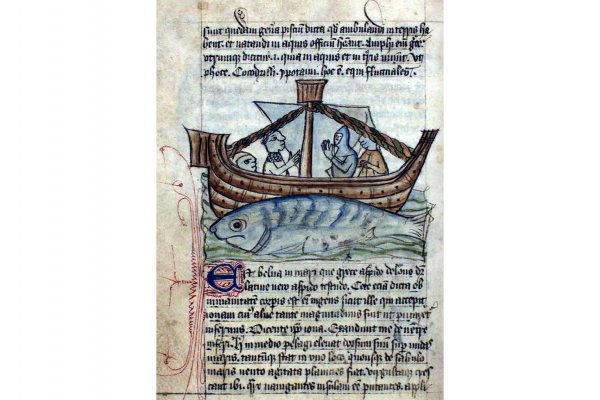 sunt quedam gen̄a pisciū dicta qd ambulandi in terris ha
bent. et natandi in aquis officiū Amphi em̄
utrumqꝫ .i. quia in aquis et in tr̄is uiuūt. vt
phoce. Cocodrilli. ypotami. hoc ē. equi fluctuales.
Est belua in mari que grece aspido delone dr̄
latine vero aspido testudo. Cete ecia dicta ob
inmanitatem corꝑis est em̄ ingens sicut ille qui excepit
ionam cuiꝰ alue tante magnitudinis fuit ut putaret
infernus. Dicente ip̄o iona. Exaudiuit me de ventre
inferi. in medio pelagi eleuat dorsum suū sup̄ undas
maris. tantūqꝫ stat in vno loco. quousqꝫ de sabulo
maris vento agitata planicies fiat. virgultaqꝫ cres
cant ibi. nauigantes insulam eē putantes. appli